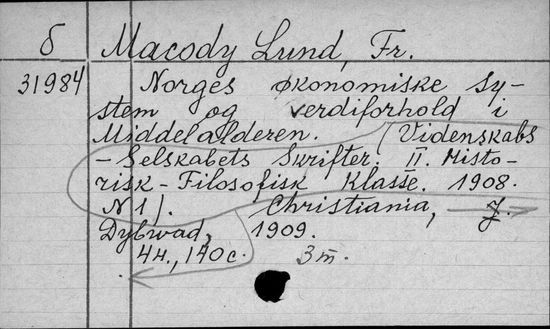 б Macody Lund, Fr.
31984 Norges økonomiske sy-
stem og verdiforhold i
Middelalderen. (Videnskabs
-Selskabets Skrifter. II. Histo-
risk-Filosofisk Klasse. 1908.
N 1).
Christiania, J.
Dybwad, 1909.
4н., 140 с. 3 m.